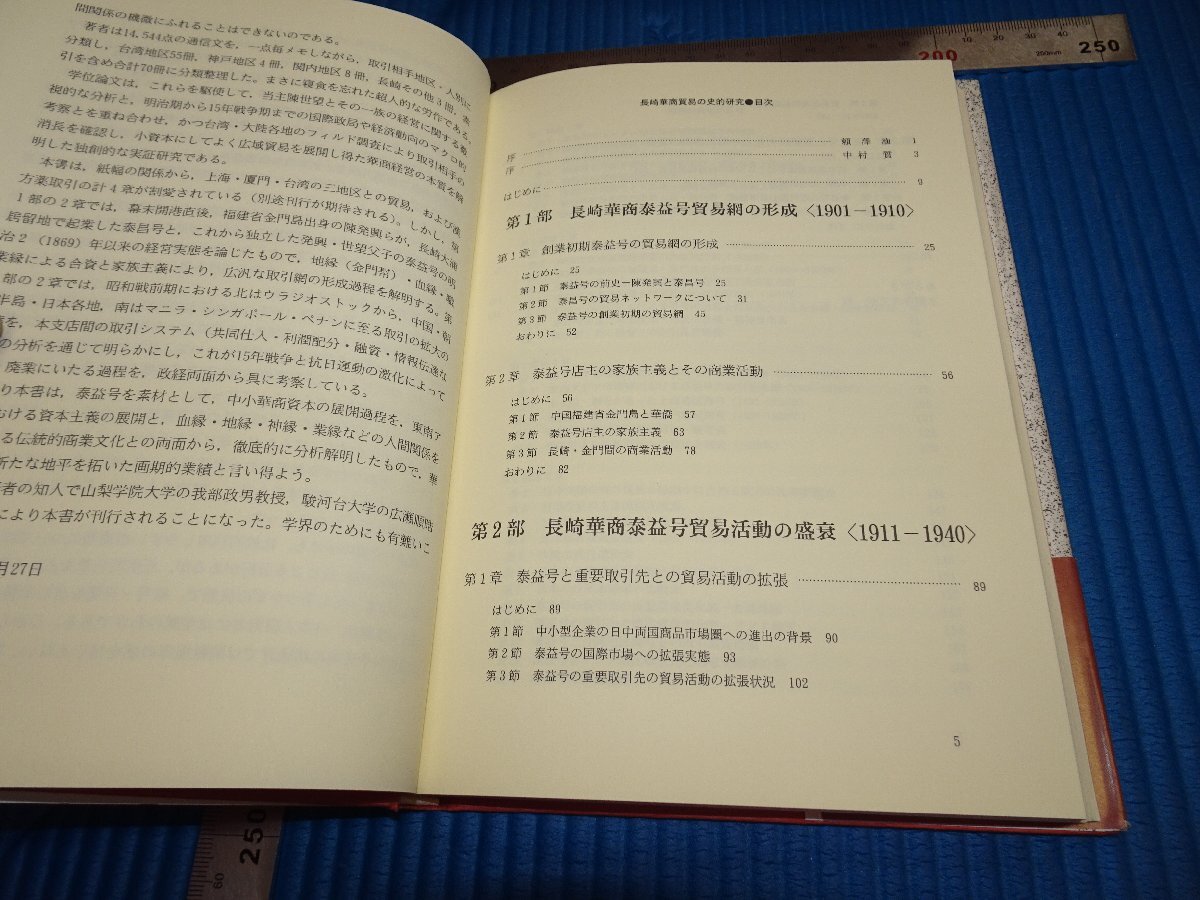 間関係の機微にふれることはできないのである。
著者は14,544点の通信文を，一点毎メモしながら，取引相手地区・人別に
分類し，台湾地区55冊，神戸地区4冊，関内地区8冊，長崎その他3冊，索
引を含め合計70冊に分類整理した。まさに寝食を忘れた超人的な労作である
学位論文は，これらを駆使して，当主陳世望とその一族の経営に関する微
視的な分析と，明治期から15年戦争期までの国際政局や経済動向のマクロ的
考察とを重ね合わせ，かつ台湾・大陸各地のフィルド調査により取引相手の
消長を確認し，小資本にしてよく広域貿易を展開し得た華商経営の本質を解
明した独創的な実証研究である。
本書は，紙幅の関係から，上海・厦門・台湾の三地区との貿易，および漢
方薬取引の計4章が割愛されている（別途刊行が期待される）。しかし，第
1部の2章では，幕末開港直後，福建省金門島出身の陳発興らが，長崎大浦
居留地で起業した泰昌号と，これから独立した発興・世望父子の泰益号の明
治2（1869）年以来の経営実態を論じたもので，地縁（金門幇）・血縁・業
業縁による合資と家族主義により，広汎な取引網の形成過程を解明する。第
部の2章では，昭和戦前期における北はウラジオストックから，中国・朝
半島・日本各地，南はマニラ・シンガポール・ペナンに至る取引の拡大の
を，本支店間の取引システム（共同仕入・利潤配分・融資・情報伝達な
の分析を通じて明らかにし，これが15年戦争と抗日運動の激化によって
廃業にいたる過程を，政経両面から具に考察している。
り本書は，泰益号を素材として，中小華商資本の展開過程を，東南ア
おける資本主義の展開と，血縁・地縁・神縁・業縁などの人間関係を
る伝統的商業文化との両面から，徹底的に分析解明したもので，華
新たな地平を拓いた画期的業績と言い得よう。
者の知人で山梨学院大学の我部政男教授，駿河台大学の広瀬順晧
により本書が刊行されることになった。学界のためにも有難いこ
月27日
長崎華商貿易の史的研究●目次
序 頼澤涵 1
序 中村質 3
はじめに 9
第1部 長崎華商泰益号貿易網の形成〈1901－1910〉
第1章 創業初期泰益号の貿易網の形成 25
はじめに 25
第1節 泰益号の前史－陳発興と泰昌号 25
第2節 泰昌号の貿易ネットワークについて 31
第3節 泰益号の創業初期の貿易網 45
おわりに 52
第2章 泰益号店主の家族主義とその商業活動 56
はじめに 56
第1節 中国福建省金門島と華僑 57
第2節 泰益号店主の家族主義 63
第3節 長崎・金門間の商業活動 78
おわりに 82
第2部 長崎華商泰益号貿易活動の盛衰〈1911－1940〉
第1章 泰益号と重要取引先との貿易活動の拡張 89
はじめに 89
第1節 中小型企業の日中両国商品市場圏への進出の背景 90
第2節 泰益号の国際市場への拡張実態 93
第3節 泰益号の重要取引先の貿易活動の拡張状況 102
5
10 20 30 40 200 10 20 30 40 250
200mm
250
60